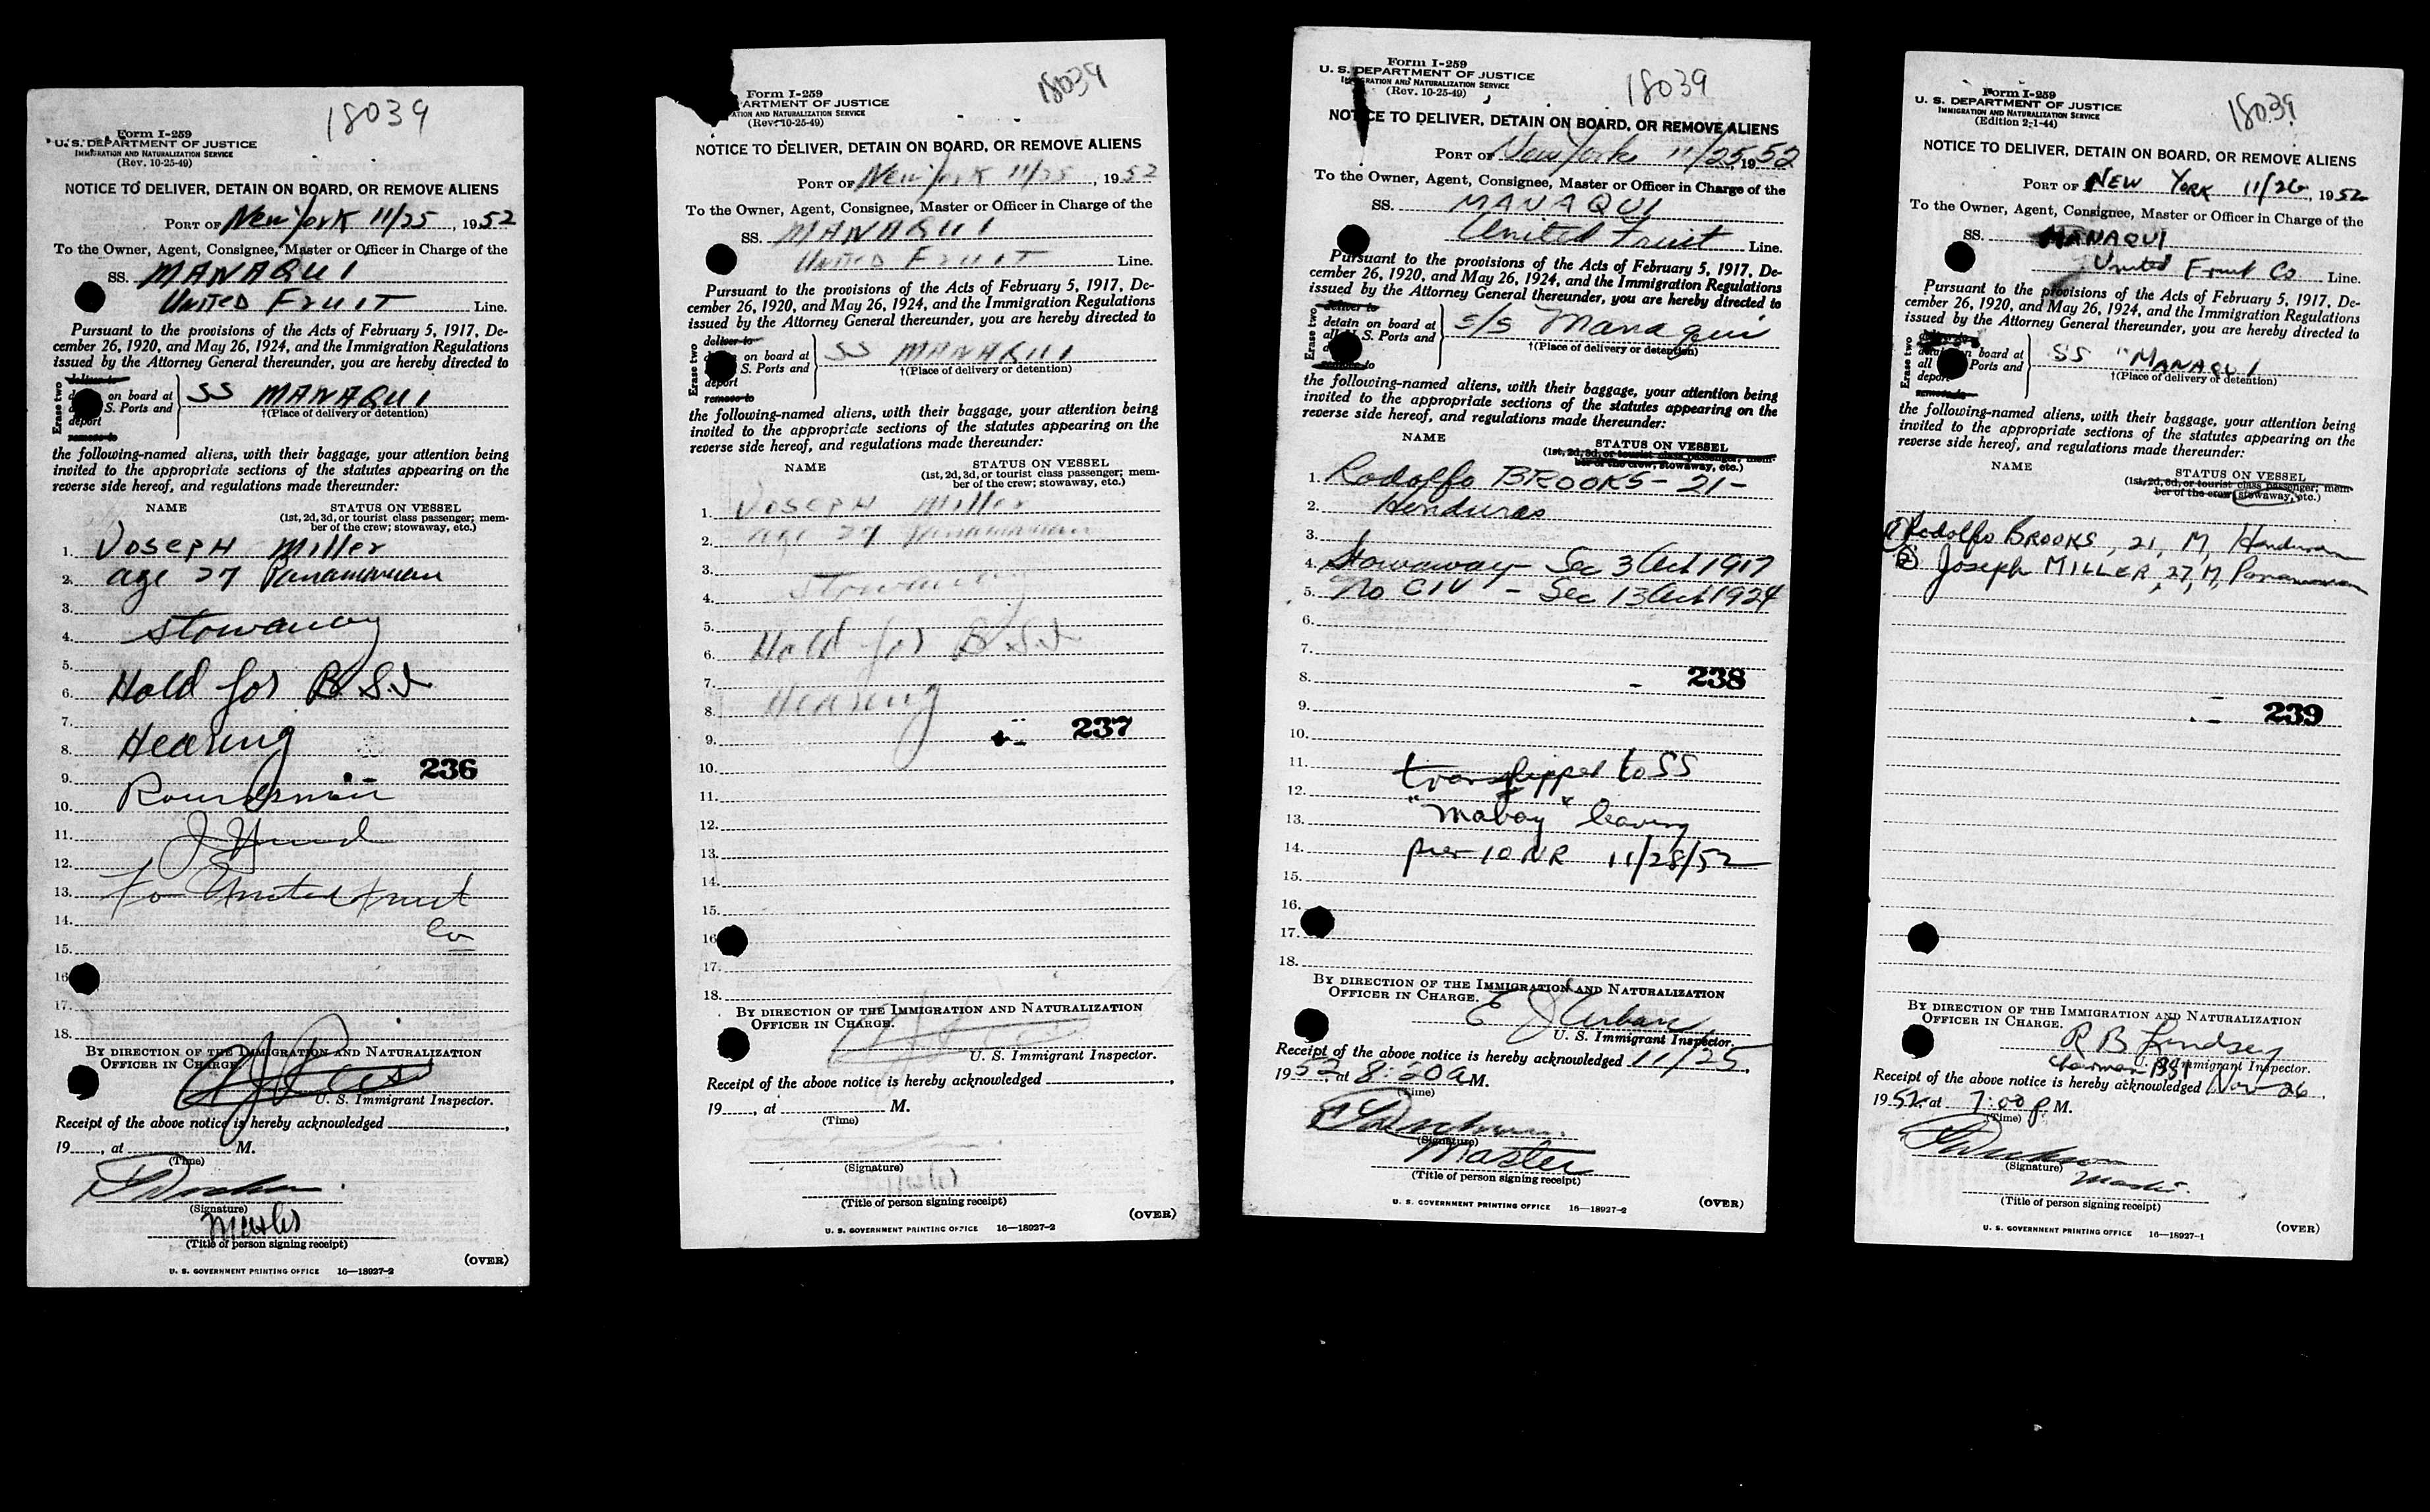 18039
Form I-259
U. S. DEPARTMENT OF JUSTICE
IMMIGRATION AND NATURALIZATION SERVICE
(Rev. 10-25-49)
NOTICE TO DELIVER, DETAIN ON BOARD, OR REMOVE ALIENS
PORT OF New York 11/25, 1952
To the Owner, Agent, Consignee, Master or Officer in Charge of the
SS. MANAQUI
UNITED FRUIT Line.
Pursuant to the provisions of the Acts of February 5, 1917, De-
cember 26, 1920, and May 26, 1924, and the Immigration Regulations
issued by the Attorney General thereunder, you are hereby directed to
Erase two
deliver to
on board at
S. Ports and
deport
remove to
SS MANAQUI
†(Place of delivery or detention)
the following-named aliens, with their baggage, your attention being
invited to the appropriate sections of the statutes appearing on the
reverse side hereof, and regulations made thereunder:
NAME STATUS ON VESSEL
(1st, 2d, 3d, or tourist class passenger; mem-
ber of the crew; stowaway, etc.)
1. JOSEPH Miller
2. age 27 Panamanian
3.
4. Stowaway
5.
6. Hold for B.S.I
7.
8. Hearing
236
9.
10. Roundsman
11.
12.
13. For United Fruit
14. Co
15.
16
17.
18.
BY DIRECTION OF THE IMMIGRATION AND NATURALIZATION
OFFICER IN CHARGE.
U. S. Immigrant Inspector.
Receipt of the above notice is hereby acknowledged
19 , at M.
(Time)
(Signature)
Master
(Title of person signing receipt)
(OVER)
U. S. GOVERNMENT PRINTING OFFICE 16—18927-2
18039
Form I-259
ARTMENT OF JUSTICE
ATION AND NATURALIZATION SERVICE
(Rev. 10-25-49)
NOTICE TO DELIVER, DETAIN ON BOARD, OR REMOVE ALIENS
PORT OF New York 11/25, 1952
To the Owner, Agent, Consignee, Master or Officer in Charge of the
SS. MANAQUI
UNITED FRUIT Line.
Pursuant to the provisions of the Acts of February 5, 1917, De-
cember 26, 1920, and May 26, 1924, and the Immigration Regulations
issued by the Attorney General thereunder, you are hereby directed to
Erase two
deliver to
on board at
S. Ports and
deport
remove to
SS MANAQUI
†(Place of delivery or detention)
the following-named aliens, with their baggage, your attention being
invited to the appropriate sections of the statutes appearing on the
reverse side hereof, and regulations made thereunder:
NAME STATUS ON VESSEL
(1st, 2d, 3d, or tourist class passenger; mem-
ber of the crew; stowaway, etc.)
1. JOSEPH Miller
2. age 27 Panamanian
3.
4. Stowaway
5.
6. Hold for B.S.I
7.
8. Hearing
237
9.
10.
11.
12.
13.
14.
15.
16
17.
18.
BY DIRECTION OF THE IMMIGRATION AND NATURALIZATION
OFFICER IN CHARGE.
U. S. Immigrant Inspector.
Receipt of the above notice is hereby acknowledged
19 , at M.
(Time)
(Signature)
Master
(Title of person signing receipt)
(OVER)
U. S. GOVERNMENT PRINTING OFFICE 16—18927-2
18039
Form I-259
U. S. DEPARTMENT OF JUSTICE
IMMIGRATION AND NATURALIZATION SERVICE
(Rev. 10-25-49)
NOTICE TO DELIVER, DETAIN ON BOARD, OR REMOVE ALIENS
PORT OF New York 11/25, 1952
To the Owner, Agent, Consignee, Master or Officer in Charge of the
SS. MANAQUI
United Fruit Line.
Pursuant to the provisions of the Acts of February 5, 1917, De-
cember 26, 1920, and May 26, 1924, and the Immigration Regulations
issued by the Attorney General thereunder, you are hereby directed to
Erase two
deliver to
detain on board at
all S. Ports and
S/S Manaqui
†(Place of delivery or detention)
the following-named aliens, with their baggage, your attention being
invited to the appropriate sections of the statutes appearing on the
reverse side hereof, and regulations made thereunder:
NAME STATUS ON VESSEL
(1st, 2d, 3d, or tourist class passenger; mem-
ber of the crew; stowaway, etc.)
1. Rodolfo BROOKS - 21 -
2. Honduras
3.
4. Stowaway - Sec 3 Act 1917
5. No CIV - Sec 13 Act 1924
6.
7.
8. 238
9.
10.
11. transhipped to SS
12.
13. "Mabay" leaving
14. pier 10 NR 11/28/52
15.
16.
17.
18.
BY DIRECTION OF THE IMMIGRATION AND NATURALIZATION
OFFICER IN CHARGE.
E J Urban
U. S. Immigrant Inspector.
Receipt of the above notice is hereby acknowledged 11/25,
1952, at 8:20 A M.
(Time)
(Signature)
Master
(Title of person signing receipt)
(OVER)
U. S. GOVERNMENT PRINTING OFFICE 16—18927-2
18039
Form I-259
U. S. DEPARTMENT OF JUSTICE
IMMIGRATION AND NATURALIZATION SERVICE
(Edition 2-1-44)
NOTICE TO DELIVER, DETAIN ON BOARD, OR REMOVE ALIENS
PORT OF NEW YORK 11/26, 1952
To the Owner, Agent, Consignee, Master or Officer in Charge of the
SS. MANAQUI
United Fruit Co Line.
Pursuant to the provisions of the Acts of February 5, 1917, De-
cember 26, 1920, and May 26, 1924, and the Immigration Regulations
issued by the Attorney General thereunder, you are hereby directed to
Erase two
detain on board at
all Ports and
deport
SS "MANAQUI
†(Place of delivery or detention)
the following-named aliens, with their baggage, your attention being
invited to the appropriate sections of the statutes appearing on the
reverse side hereof, and regulations made thereunder:
NAME STATUS ON VESSEL
(1st, 2d, 3d, or tourist class passenger; mem-
ber of the crew; stowaway, etc.)
(1) Rodolfo BROOKS, 21, M, Honduran
(2) Joseph MILLER, 27, M, Panamanian
239
BY DIRECTION OF THE IMMIGRATION AND NATURALIZATION
OFFICER IN CHARGE.
R B Lindsey
Chairman BSI
U. S. Immigrant Inspector.
Receipt of the above notice is hereby acknowledged Nov 26,
1952, at 7:00 p M.
(Time)
(Signature)
Master
(Title of person signing receipt)
(OVER)
U. S. GOVERNMENT PRINTING OFFICE 16—18927-1